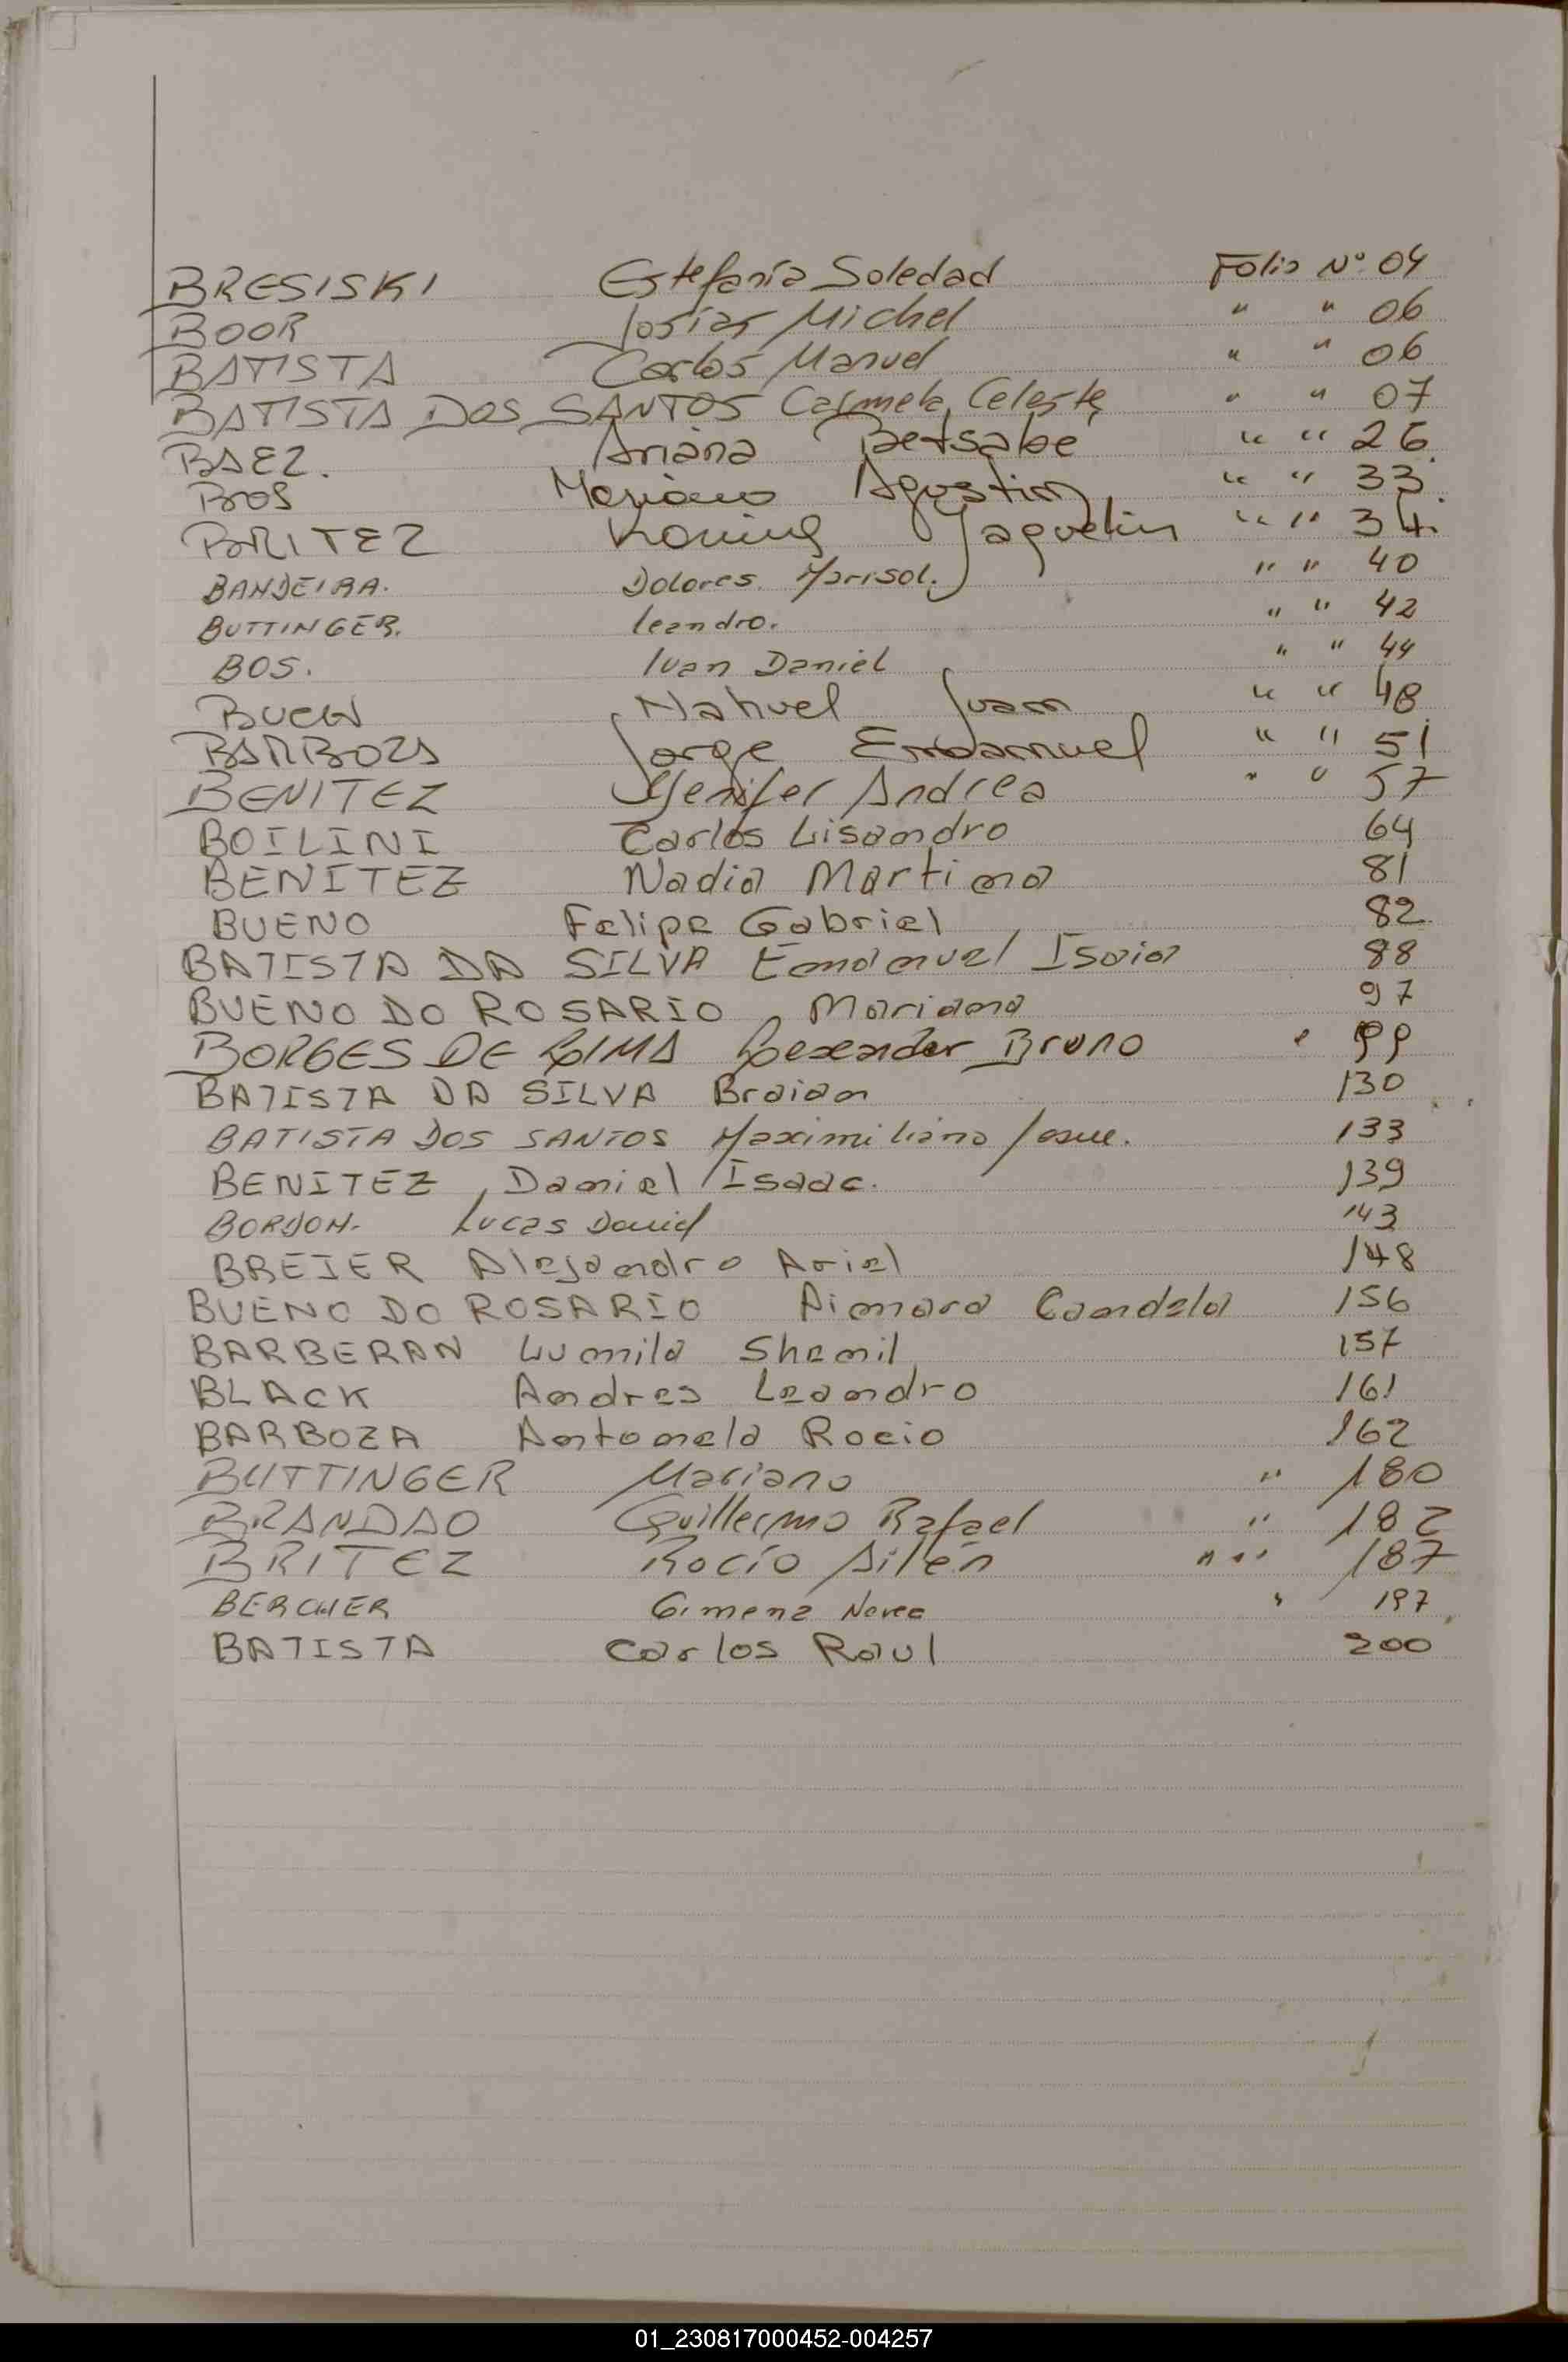 BRESISKI Estefanía Soledad Folio Nº 04
BOOR Josías Michel " " 06
BATISTA Carlos Manuel " " 06
BATISTA DOS SANTOS Carmela Celeste " " 07
BAEZ. Ariana Betsabe " " 26
BROS Mariano Agustin " " 33.
BRITEZ Jaquelin " " 34.
BANDEIRA. Dolores Marisol. " " 40
BUTTINGER. Leandro. " " 42
BOS. Ivan Daniel " " 44
Nahuel Juan " " 48
BARBOZA Jorge Emanuel " " 51
BENITEZ Yenifer Andrea " " 57
BOILINI Carlos Lisandro 64
BENITEZ Nadia Martina 81
BUENO Felipe Gabriel 82
BATISTA DA SILVA Emanuel Isaia 88
BUENO DO ROSARIO Mariana 97
BORGES DE LIMA Bruno 99
BATISTA DA SILVA Braian 130
BATISTA DOS SANTOS Maximiliano Josue. 133
BENITEZ, Daniel Isaac. 139
BORDON. Lucas David 143
BREIER Alejandro Ariel 148
BUENO DO ROSARIO Aimara Candela 156
BARBERAN Lumila Shemil 157
BLACK Andres Leandro 161
BARBOZA Antonela Rocio 162
BUTTINGER Mariano " 180
BRANDAO Guillermo Rafael " 182
BRITEZ Rocío Ailén " " 187
Gimena 197
BATISTA Carlos Raul 200
01_230817000452-004257